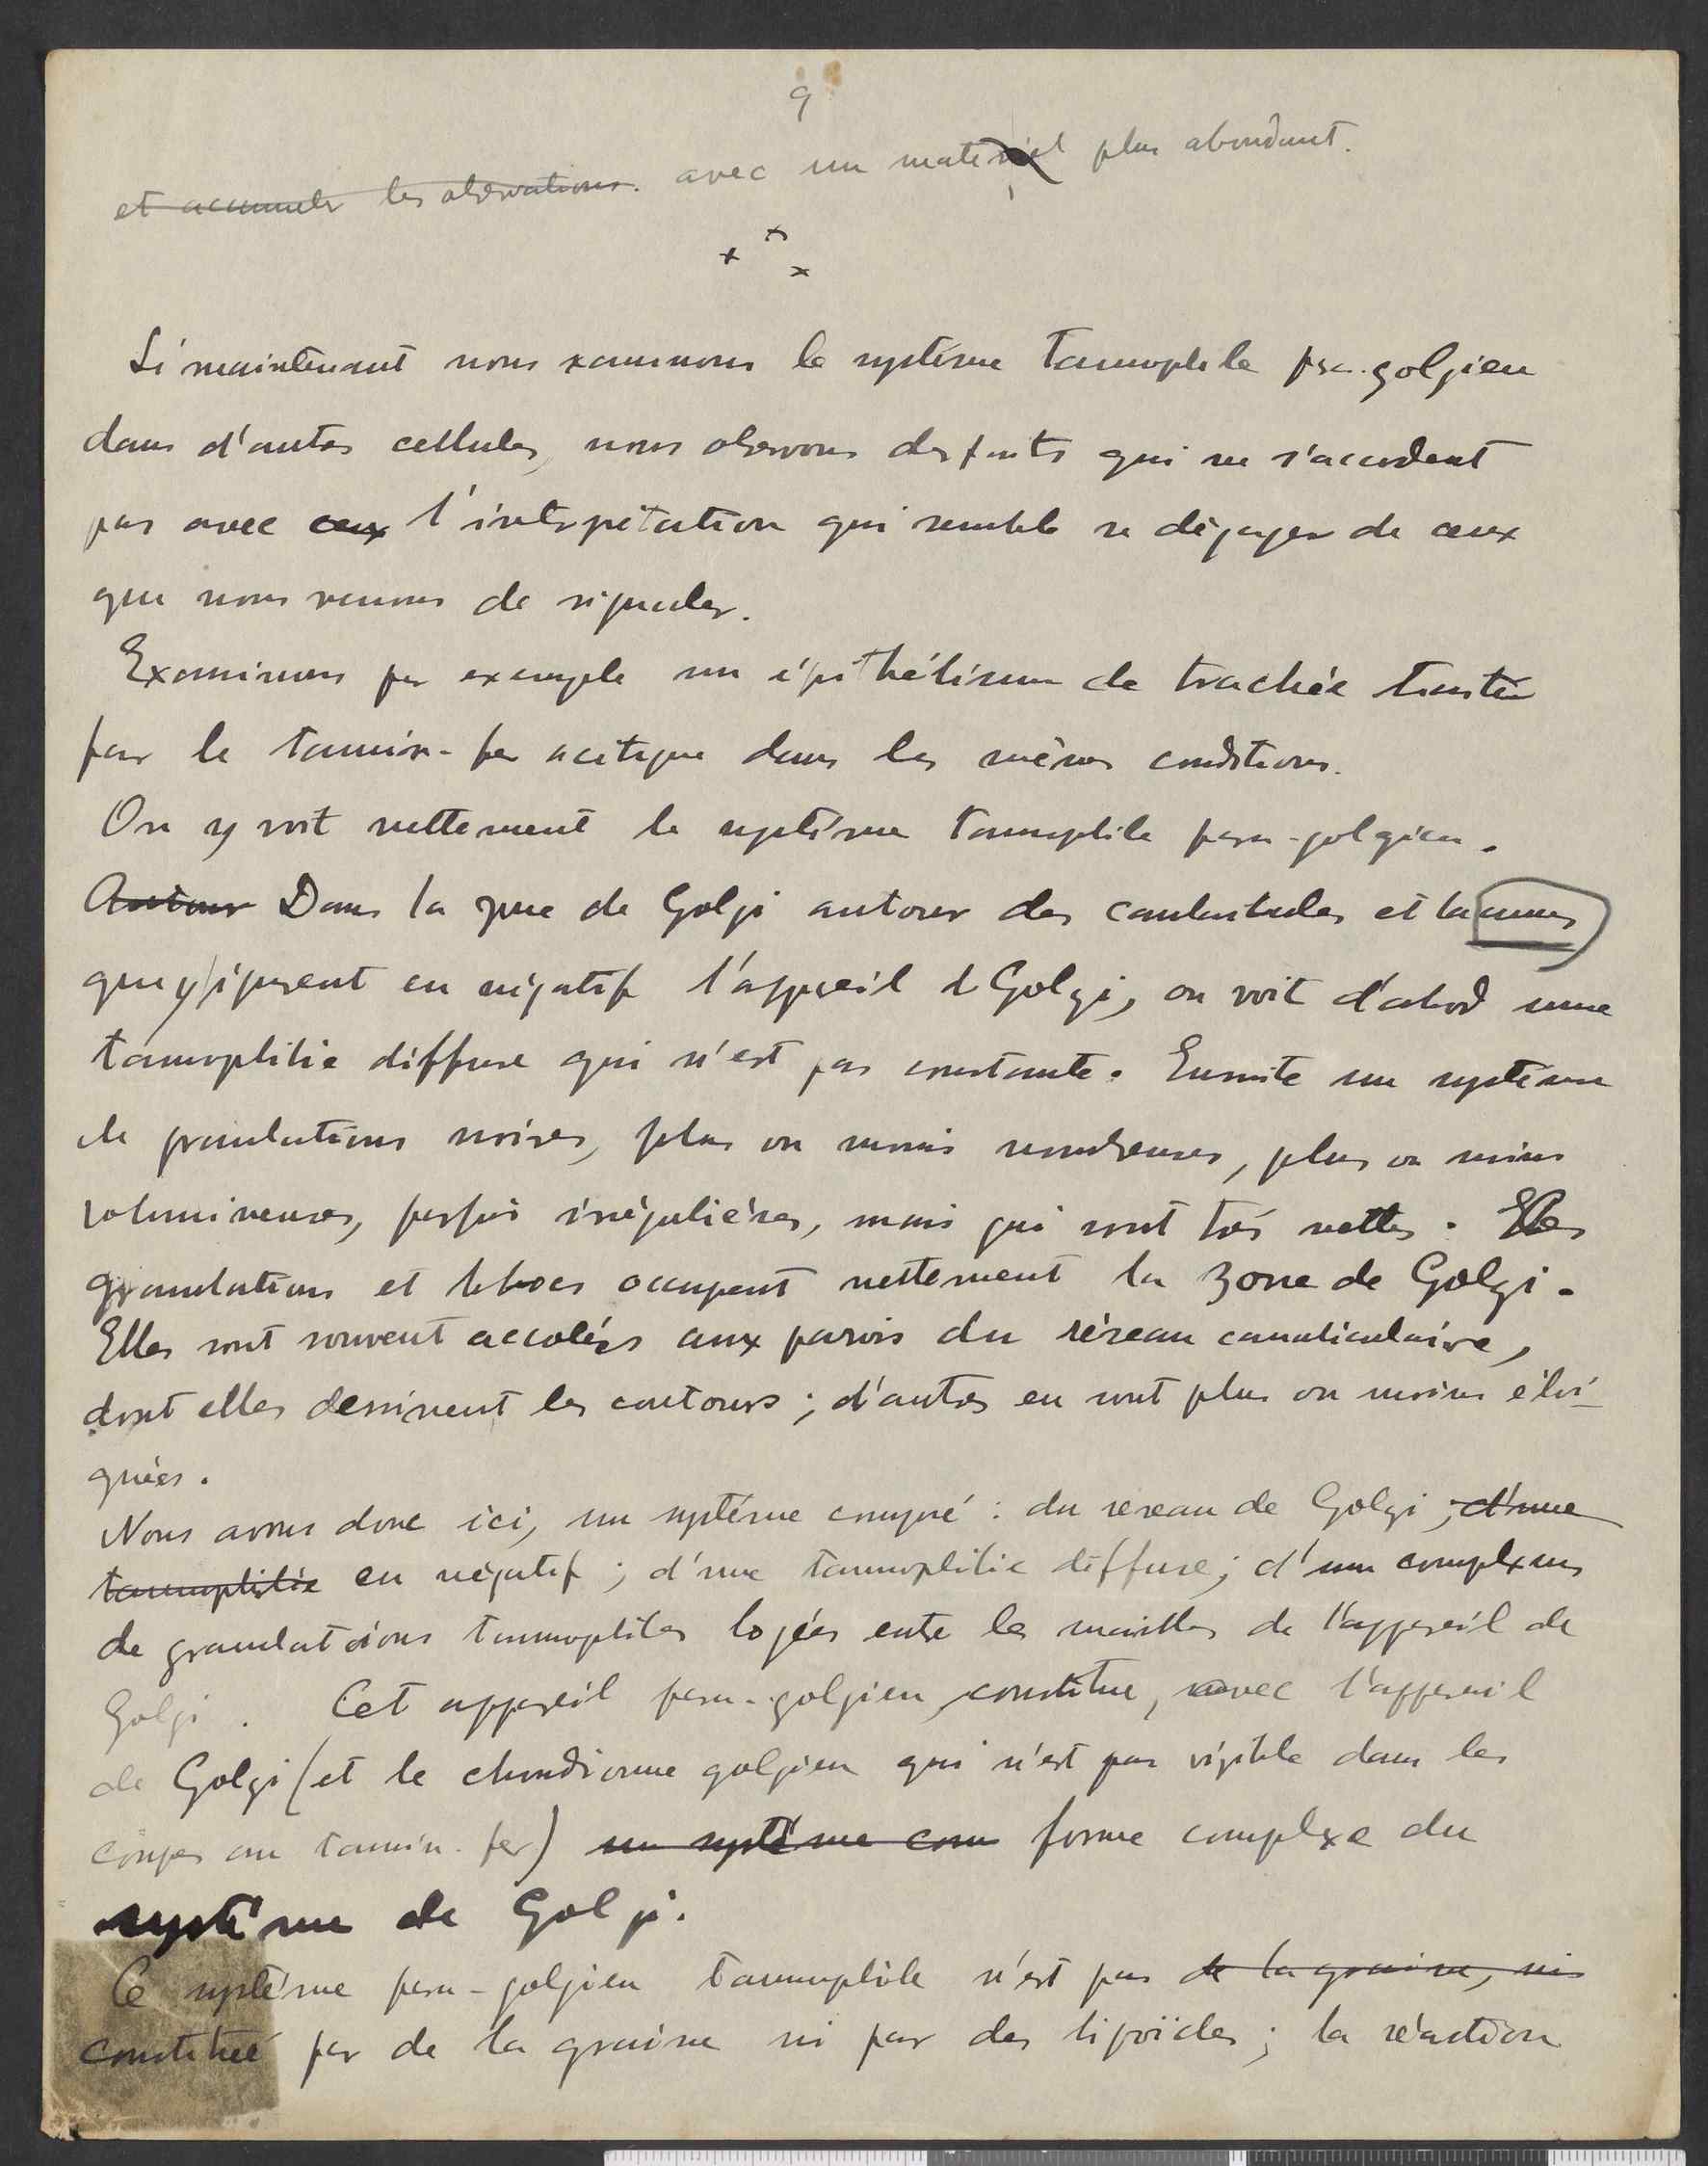 9
et accumuler les observations. avec un matériel plus abondant.
+ + x
Si maintenant nous xaminons le système tannophile para-golgien
dans d'autres cellules, nous observons des faits qui ne s'accordent
pas avec ceux l'interprétation qui semble se dégager de ceux
que nous venons de signaler.
Examinons par exemple un épithélium de trachée traitée
par le tannin-fer acétique dans les mêmes conditions.
On y voit nettement le système tannophile para-golgien.
Autour Dans la zone de Golgi autour des canalicules et lacunes
que figurent en négatif l'appareil de Golgi, on voit d'abord une
tannophilie diffuse qui n'est pas constante. Ensuite un système
de granulations noires, plus ou moins nombreuses, plus ou moins
volumineuses, parfois irrégulières, mais qui sont très nettes. Les
granulations et occupent nettement la zone de Golgi.
Elles sont souvent accolées aux parois du réseau canaliculaire,
dont elles dessinent les contours; d'autres en sont plus ou moins éloi-
gnées.
Nous avons donc ici, un système composé : du reseau de Golgi ; d'une
tannophilie en négatif ; d'une tannophilie diffuse; d'un complexus
de granulations tannophiles logées entre les mailles de l'appareil de
Golgi. Cet appareil para-golgien constitue, avec l'appareil
de Golgi (et le chondriome golgien qui n'est pas visible dans les
coupes au tannin-fer) un système com forme complexe du
système de Golgi.
Ce système para-golgien tannophile n'est pas de la graisse, ni
constitué par de la graisse ni par des lipoïdes; la réaction